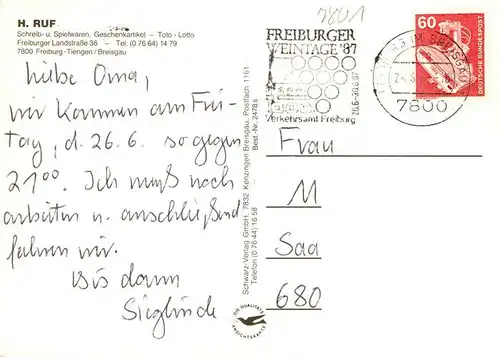 H. RUF
Schreib- u. Spielwaren, Geschenkartikel – Toto - Lotto
Freiburger Landstraße 36 – Tel. (0 76 64) 14 79
7800 Freiburg-Tiengen / Breisgau
liebe Oma,
wir kommen am Frei-
tag, d. 26.6. so gegen
21⁰⁰. Ich muß noch
arbeiten u. anschließend
fahren wir.
Bis dann
Sieglinde
Schwarz-Verlag GmbH, 7832 Kenzingen Breisgau, Postfach 1161
Telefon (0 76 44) 16 58 Best.-Nr. 2478 s
DIE QUALITÄTS
ANSICHTSKARTE
7801
FREIBURGER
WEINTAGE '87
26.6-30.6.87
Verkehrsamt Freiburg
IM BREISGAU
7800
60
DEUTSCHE BUNDESPOST
Frau
M
Saa
680